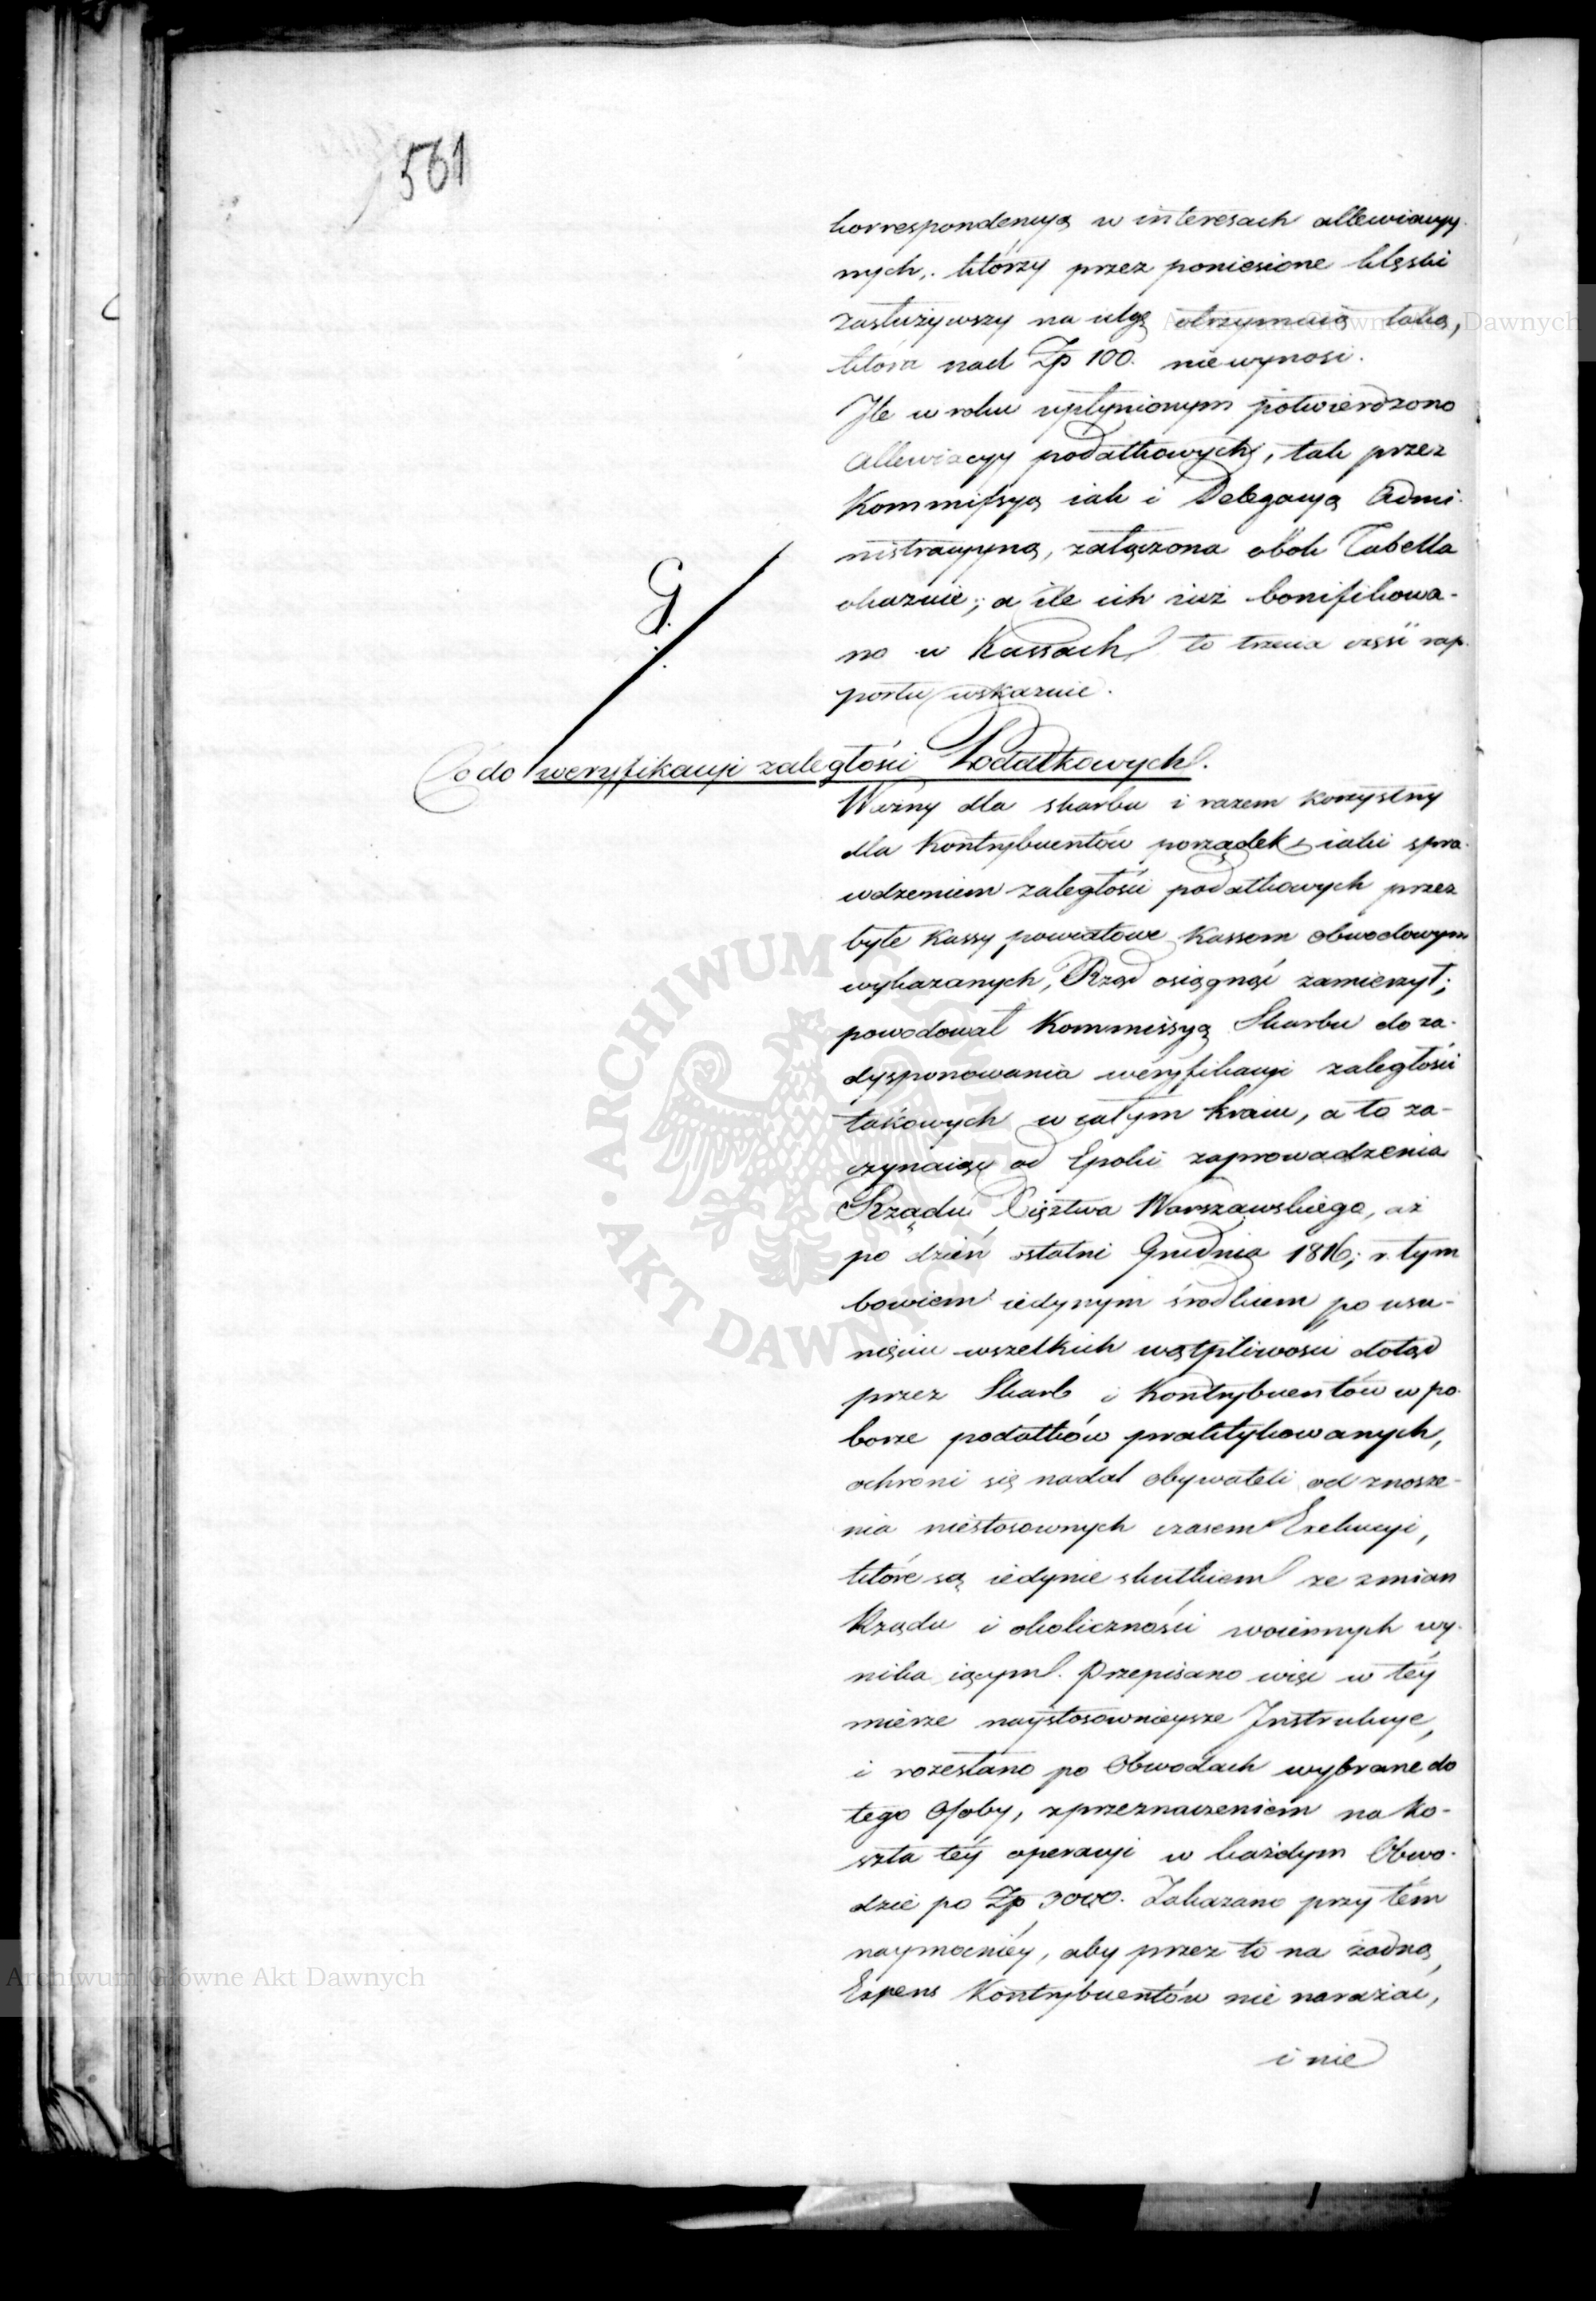 561
korrespondencyą w interesach allewiacyy-
nych, którzy przez poniesione klęski
zasłużywszy na ulgę otrzymuią taką,
która nad Zp 100. niewynosi.
Jle w roku upłynionym potwierdzono
allewiacyy podatkowych, tak przez
Kommissyą iak i Delegacyą Admi-
nistracyyną, załączona obok Tabella
okazuie; a ile ich iuż bonifikowa-
no w Kassach to trzecia część rap-
portu wskazuie.
G.
Co do weryfikacyi zaległości Podatkowych.
Ważny dla skarbu i razem korzystny
dla Kontrybuentów porządek iaki spra-
wdzeniem zaległości podatkowych przez
byłe Kassy powiatowe Kassom obwodowym
wykazanych, Rząd osiągnąć zamierzył;
powodował Kommissyą Skarbu do za-
dysponowania weryfikacyi zaległości
takowych w całym kraiu, a to za-
czynaiąc od Epoki zaprowadzenia
Rządu Xięztwa Warszawskiego, aż
po dzień ostatni Grudnia 1816; r. tym
bowiem iedynym środkiem po usu-
nięciu wszelkich wątpliwości dotąd
przez Skarb i Kontrybuentów w po-
borze podatków praktykowanych,
ochroni się nadal obywateli od znosze-
nia niestosownych czasem Exekucyi,
które są iedynie skutkiem ze zmian
Rządu i okoliczności woiennych wy-
nika iącym. Przepisano więc w téy
mierze naystosownieysze Jnstrukcye,
i rozesłano po Obwodach wybrane do
tego Osoby, z przeznaczeniem na ko-
szta téy operacyi w każdym Obwo-
dzie po Zp 3000. Zakazano przy tém
naymocniéy, aby przez to na żadną
Expens Kontrybuentów nie narażać,
i nie
Archiwum Główne Akt Dawnych
Archiwum Główne Akt Dawnych
ARCHIWUM GŁÓWNE AKT DAWNYCH